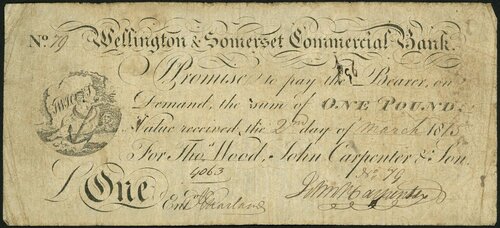 No. 79 Wellington & Somerset Commercial Bank.
I Promise to pay the Bearer, on
Demand, the Sum of ONE POUND,
Value received, the 2nd day of March 1815
For Thos. Wood, John Carpenter & Son,
4063
No 79
£ One
Entd.
John Carpenter